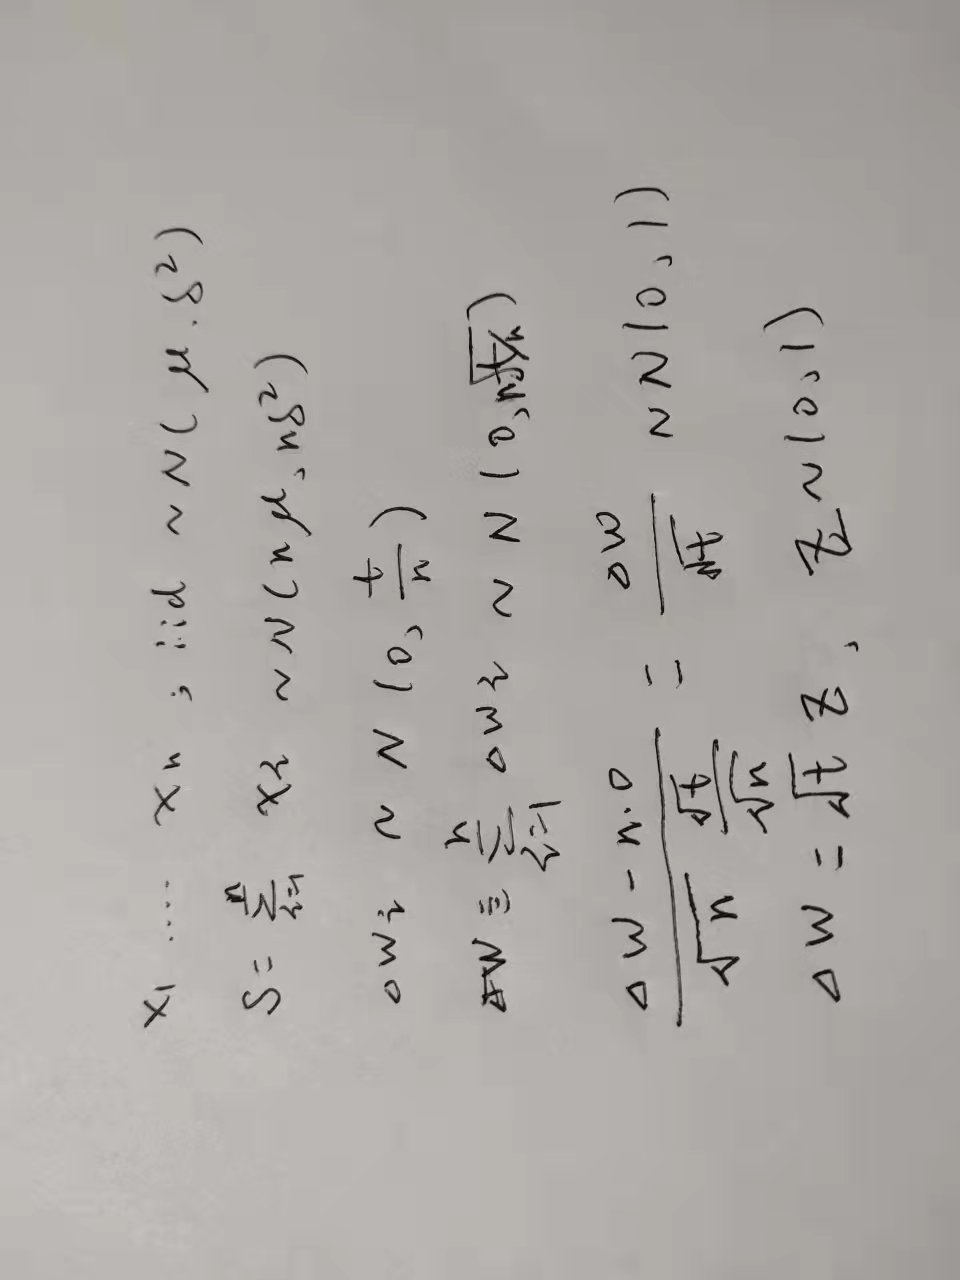 x₁ .... xₙ ; iid ~ N( μ . δ²)
S = ∑ᵢ₌₁ⁿ xᵢ ~ N( nμ, nδ²)
△Wᵢ ~ N (0, t/n)
△W ≡ ∑ᵢ₌₁ⁿ △Wᵢ ~ N (0, n√(t/n))
(△W − n·0)/(√n √t/√n) = △W/√t ~ N(0, 1)
△W = √t Z, Z ~ (0, 1)